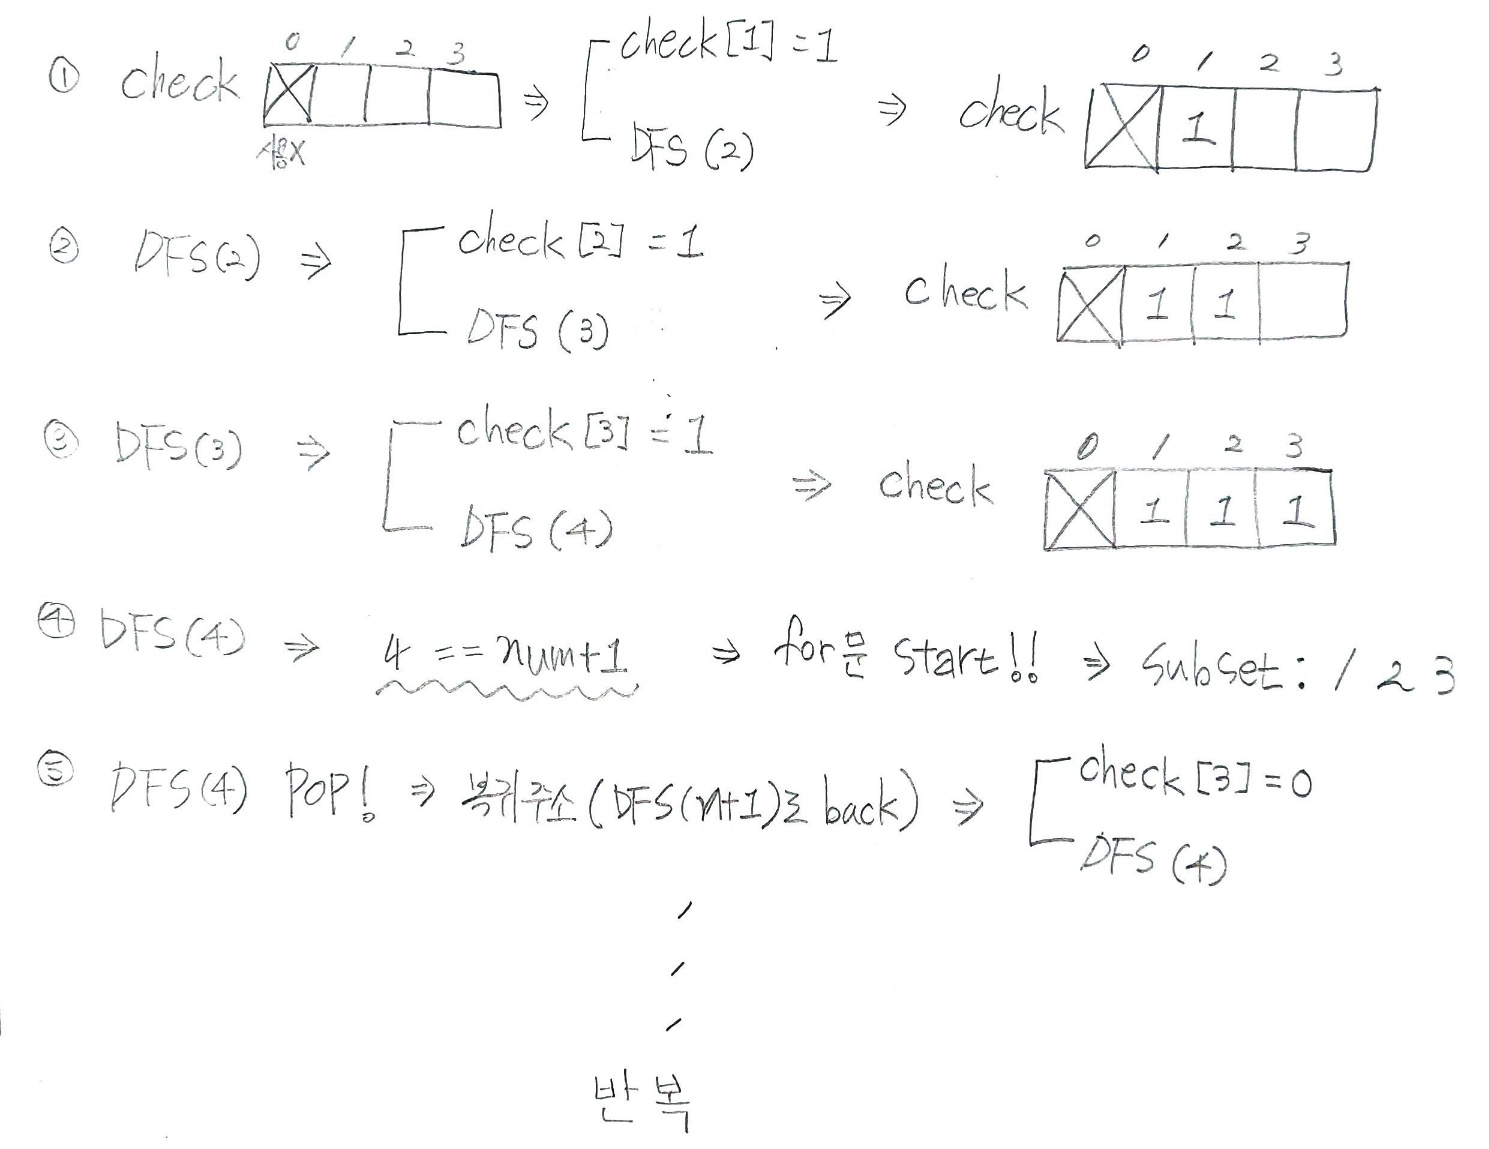 0 1 2 3
① check ⇒ check[1]=1 ⇒ check 0 1 2 3
사용X DFS(2) 1
② DFS(2) ⇒ check[2]=1
DFS(3) ⇒ check 0 1 2 3
1 1
③ DFS(3) ⇒ check[3]=1
DFS(4) ⇒ check 0 1 2 3
1 1 1
④ DFS(4) ⇒ 4 == num+1 ⇒ for문 start!! ⇒ subset: 1 2 3
⑤ DFS(4) POP! ⇒ 복귀주소(DFS(n+1)로 back) ⇒ check[3]=0
DFS(4)
반복